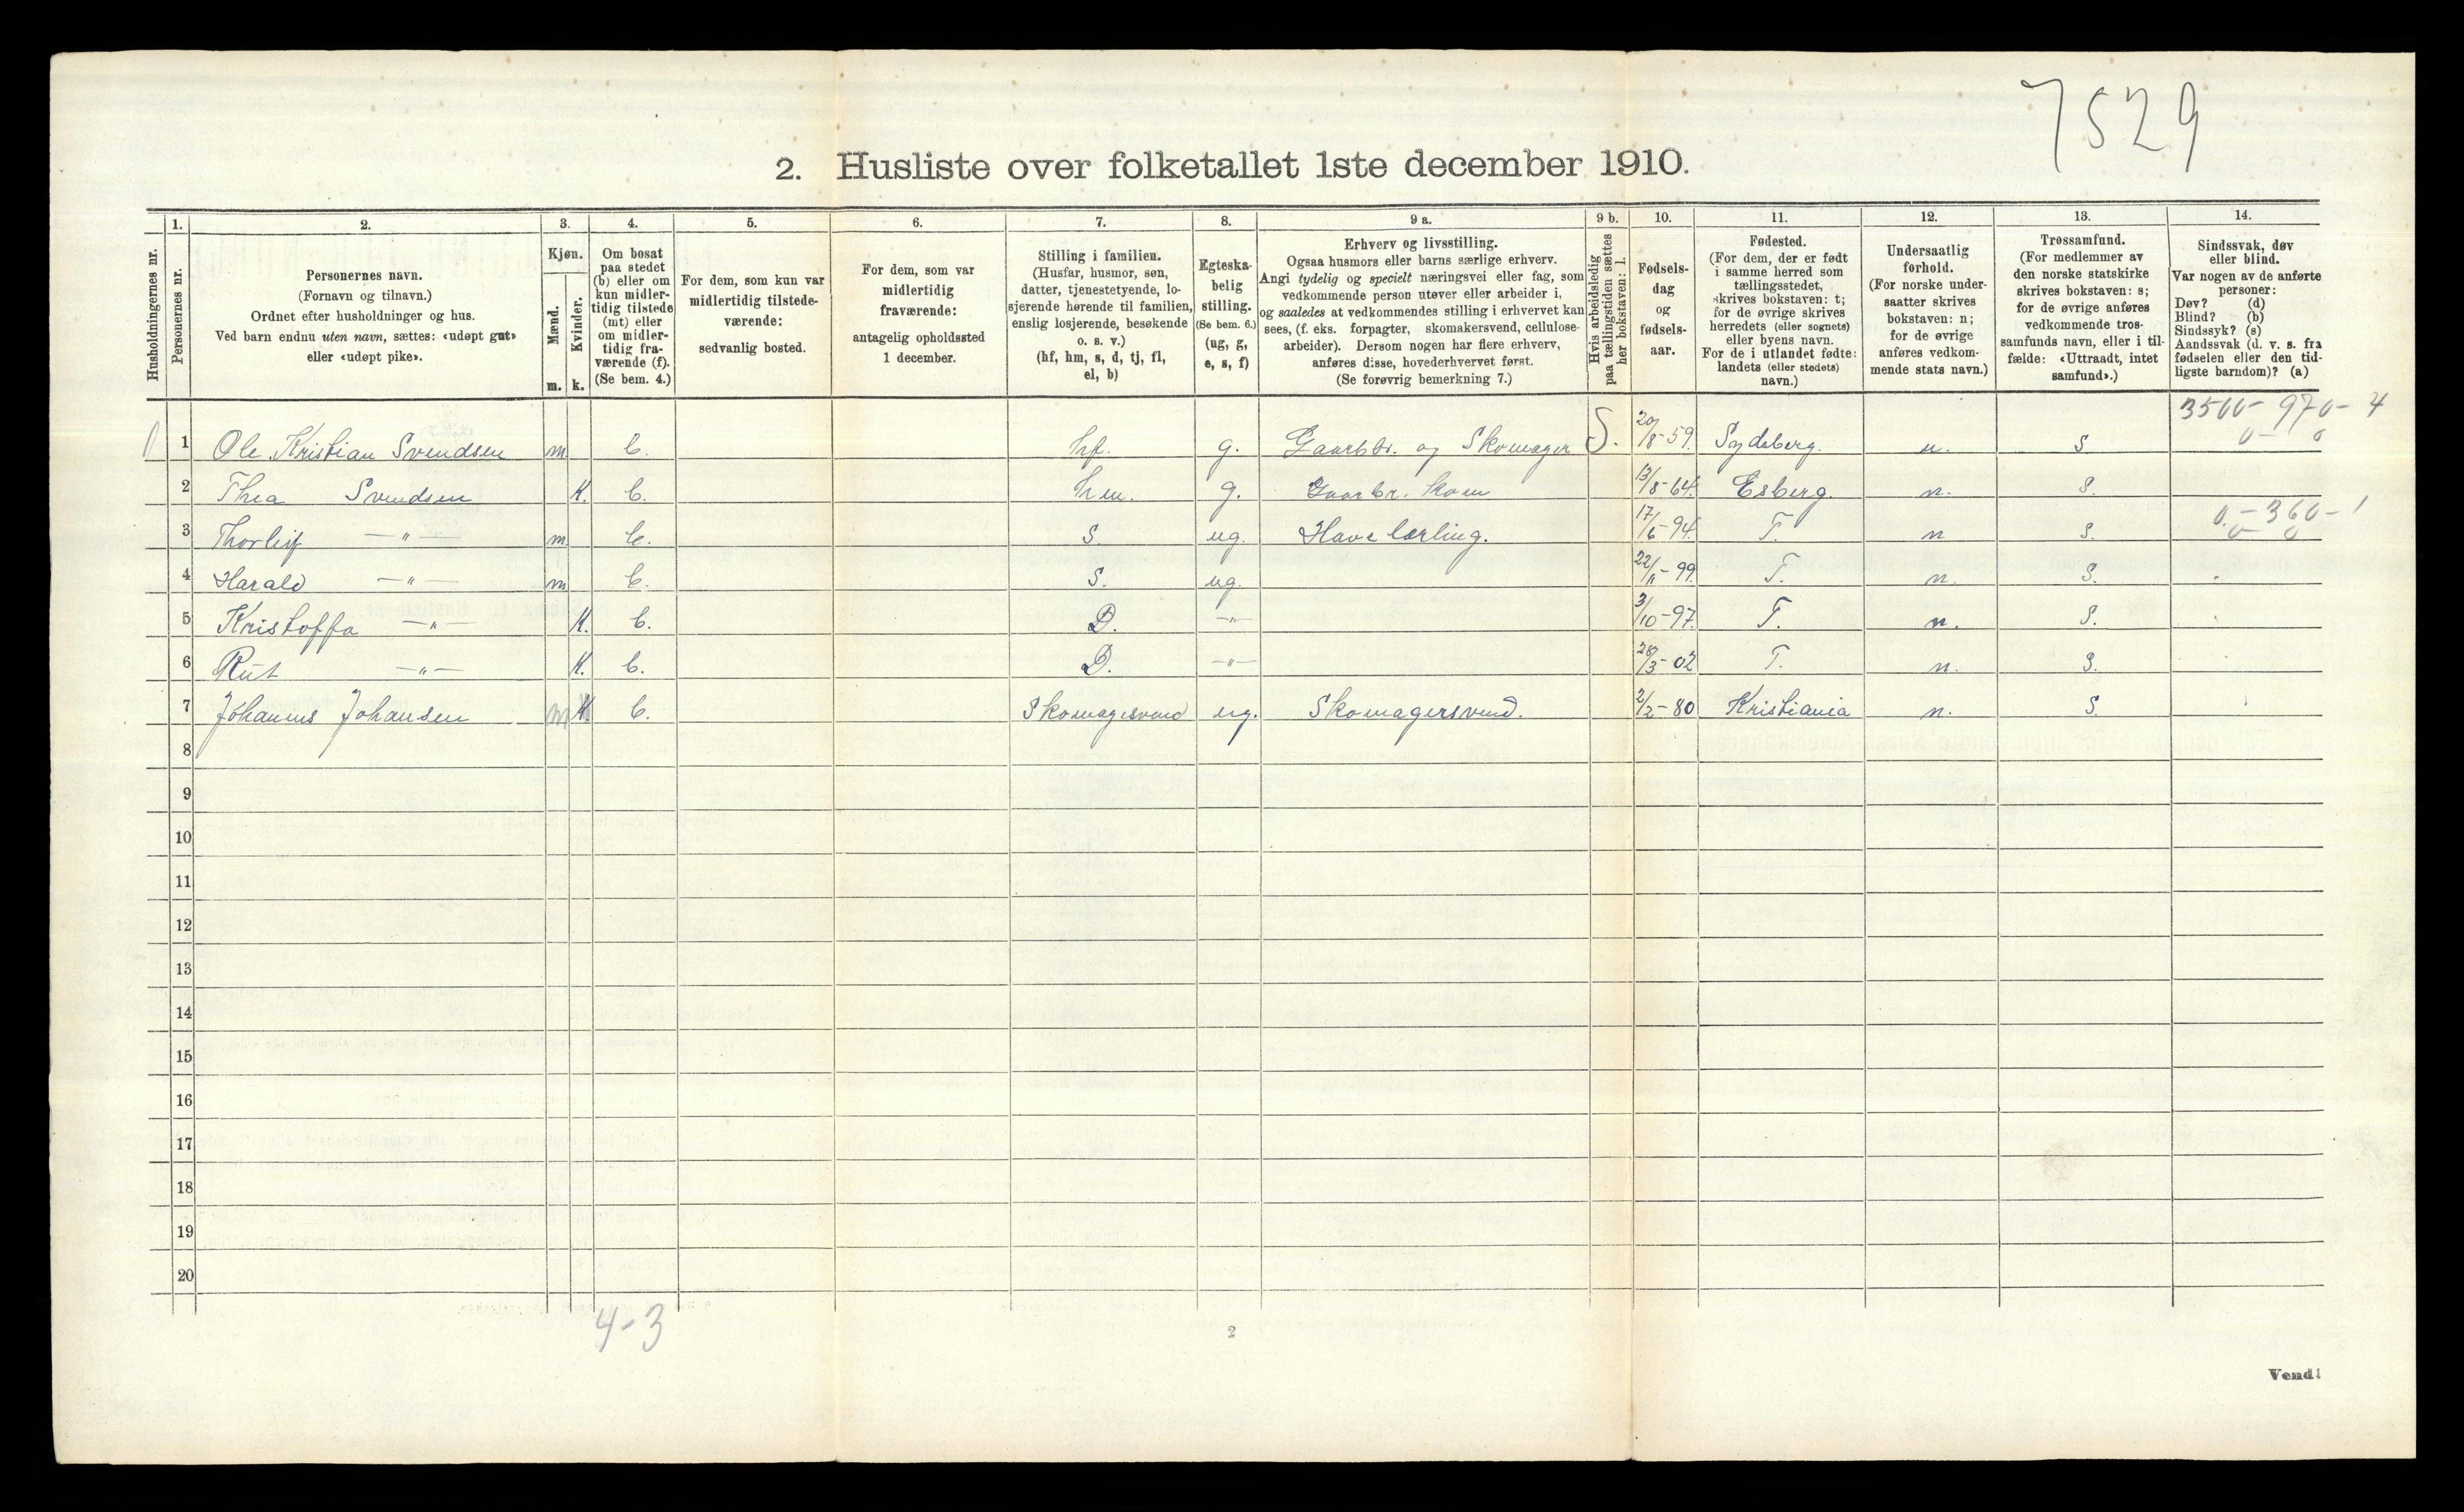 7529
2. Husliste over folketallet 1ste december 1910.
Husholdningernes nr.
1. Personernes nr.
2. Personernes navn. (Fornavn og tilnavn.) Ordnet efter husholdninger og hus. Ved barn endnu uten navn, sættes: «udøpt gut» eller «udøpt pike».
3. Kjøn. Mænd. m. Kvinder. k.
4. Om bosat paa stedet (b) eller om kun midlertidig tilstede (mt) eller om midlertidig fraværende (f). (Se bem. 4.)
5. For dem, som kun var midlertidig tilstedeværende: sedvanlig bosted.
6. For dem, som var midlertidig fraværende: antagelig opholdssted 1 december.
7. Stilling i familien. (Husfar, husmor, søn, datter, tjenestetyende, losjerende hørende til familien, enslig losjerende, besøkende o. s. v.) (hf, hm, s, d, tj, fl, el, b)
8. Egteskabelig stilling. (Se bem. 6.) (ug, g, e, s, f)
9 a. Erhverv og livsstilling. Ogsaa husmors eller barns særlige erhverv. Angi tydelig og specielt næringsvei eller fag, som vedkommende person utøver eller arbeider i, og saaledes at vedkommendes stilling i erhvervet kan sees, (f. eks. forpagter, skomakersvend, cellulosearbeider). Dersom nogen har flere erhverv, anføres disse, hovederhvervet først. (Se forøvrig bemerkning 7.)
9 b. Hvis arbeidsledig paa tællingstiden sættes her bokstaven: l.
10. Fødselsdag og fødselsaar.
11. Fødested. (For dem, der er født i samme herred som tællingsstedet, skrives bokstaven: t; for de øvrige skrives herredets (eller sognets) eller byens navn. For de i utlandet fødte: landets (eller stedets) navn.)
12. Undersaatlig forhold. (For norske undersaatter skrives bokstaven: n; for de øvrige anføres vedkommende stats navn.)
13. Trossamfund. (For medlemmer av den norske statskirke skrives bokstaven: s; for de øvrige anføres vedkommende trossamfunds navn, eller i tilfælde: «Uttraadt, intet samfund».)
14. Sindssvak, døv eller blind. Var nogen av de anførte personer: Døv? (d) Blind? (b) Sindssyk? (s) Aandssvak (d. v. s. fra fødselen eller den tidligste barndom)? (a)
3500 - 970 - 4
0 - 0
1 Ole Kristian Svendsen m b. hf. g. Gaarbr. og Skomager S. 20/8-59. n. S.
2 Thea Svendsen K. b. hm. g. Gaarbr. Skom 13/8-64. Esberg. n. S.
0 - 360 - 1
0 0
3 Thorleif —"— m b. S. ug. Have lærling. 17/6-94. T. n S.
4 Harald —"— m b. S. ug. 22/11-99. T. n. S.
5 Kristoffa —"— K. b. D. —"— 3/10-97. T. n. S.
6 Rut —"— K. b. D. —"— 28/3-02 T. n. S.
7 Johannes Johansen m K. b. Skomagersvend ug. Skomagersvend. 2/2-80 Kristiania n. S.
8
9
10
11
12
13
14
15
16
17
18
19
20
4-3
2
Vend!